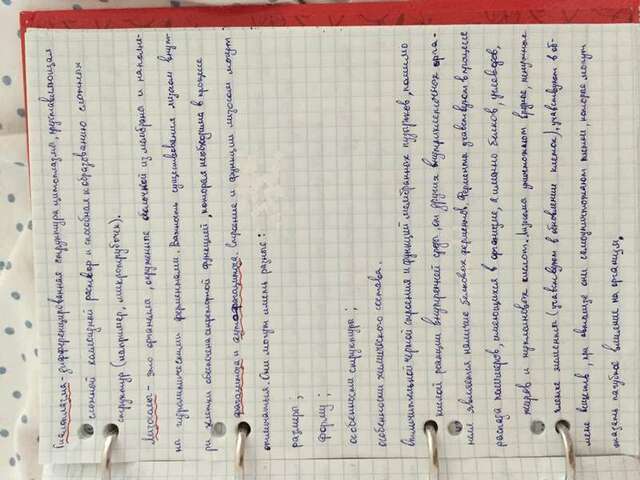 Гиалоплазма - дифференцированная структура цитоплазмы, представляющая
сложной коллоидный раствор и способная к образованию сложных
структур (например, микротрубочек).
Лизосомы - это органелла, окруженные оболочкой из мембраны и наполне-
на гидролитическими ферментами. Важность существования лизосом внут-
ри клетки обеспечена секреторной функцией, которая необходима в процессе
фагоцитоза и аутофагоцитоза. Строение и функции лизосом могут
отличаться. Они могут иметь разные:
размеры;
форму;
особенности структура;
особенности химического состава.
Отличительной чертой строения и функций мембранных пузырьков, помимо
кислой реакции внутренней среды, от других внутриклеточных орга-
нелл является наличие белковых ферментов. Ферменты учавствуют в процессе
распада полимеров, имеющихся в организме, а именно белков, углеводов,
жиров и нуклеиновых кислот. Лизосома уничтожают вредное, ненужные
клетке элементы (учавствуют в обновление клеток), учавствуют в об-
мене веществ, при автолизе они самоуничтожают клетки, которые могут
оказать пагубное влияние на организм.